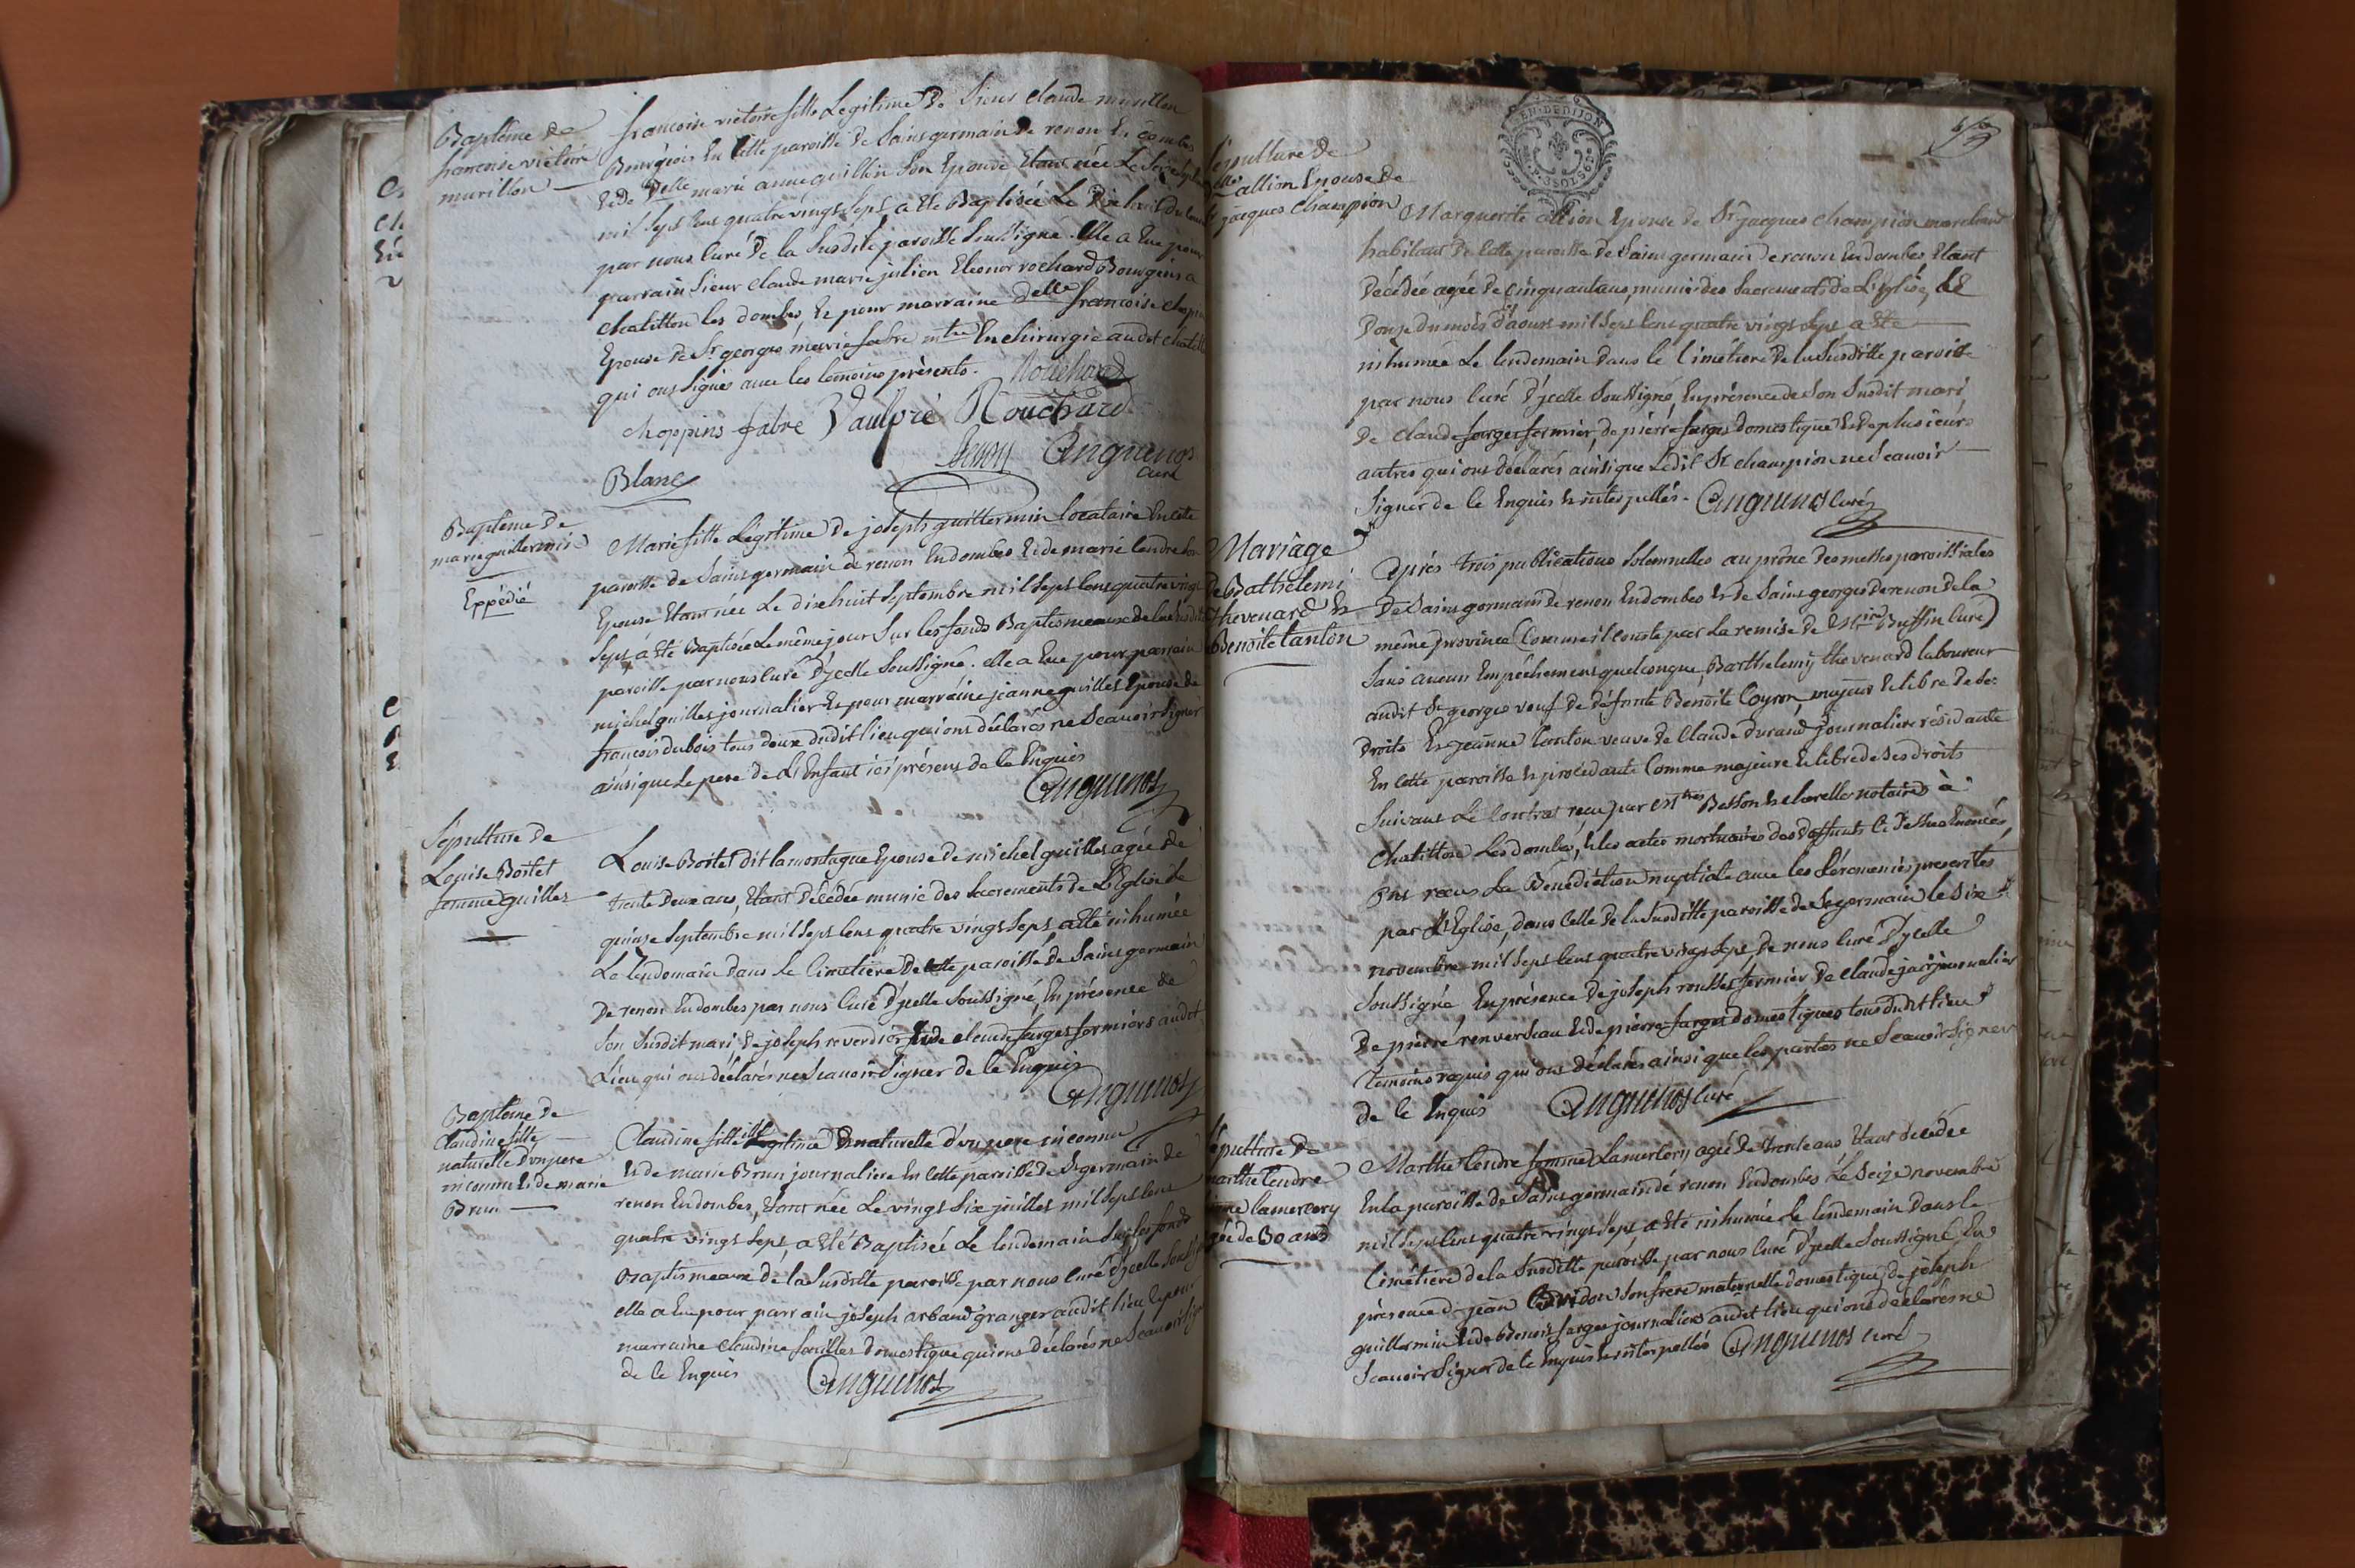 Baptême de
francoise victoire
murillon
francoise victoire fille Legitime de Sieur claude murillon
Bourgeois En Cette paroisse de Saint germain de renon En dombes
Et de Delle marie anne guillin Son Epouse Etant née Le
mil Sept Cent quatre vingt Sept a été Baptisée Le Dix huit du
par nous Curé De la Susdite paroisse Soussigné. Elle a Eue pour
parrain Sieur claude marie julien Eleonor rochard Bourgeois a
chatillon les dombes, Et pour marraine Delle francoise
Epouse de Sr george marie fabre mtre En chirurgie audit
qui ont Signés avec les temoins présents. Rouchard
choppins fabre Vaulpré Rouchard
Anguinos
curé
Blanc
Baptême de
marie guillermin
Expédié
Marie fille Légitime de joseph guillermin locataire En cete
paroisse de Saint germain de renon En dombes Et de marie Cendre Son
Epouse Etant née Le dixhuit Septembre mil Sept Cent quatre vingt
Sept, a été Baptisée Le même jour Sur les fonds Baptismeaux de la Susdite
paroisse par nous Curé d'ycelle Soussigné. elle a Eue pour parrain
michel guilles journalier Et pour marraine jeanne guilles Epouse de
francois dubois tous deux dudit lieu qui ont déclarés ne Scavoir Signer
ainsi que Le pere de L'Enfant ici présent de Ce Enquis
Anguinos
Sépulture de
Louise Boitet
femme guilles
Louise Boitet dit lamontagne Epouse de michel guilles agée de
trente Deux ans, Etant Décédée munie des Sacrements de L'Eglise le
quinze Septembre mil Sept Cent quatre vingt Sept a été inhumée
Le lendemain dans le Cimetiere de Cette paroisse de Saint germain
De renon En dombes par nous Curé d'ycelle Soussigné, En présence de
Son Susdit mari de joseph reverdier Et de claude farges fermiers audit
Lieu qui ont déclarés ne Scavoir Signer de Ce Enquis
Anguinos
Baptême de
Claudine fille
naturelle d'un pere
inconnu Et de marie
Brun
Claudine fille illegitime Et naturelle d'un pere inconnu
Et de marie Brun journaliere En Cette paroisse de St germain de
renon En dombes, Etant née Le vingt Six juillet mil Sept Cent
quatre vingt Sept, a été Baptisée Le lendemain Sur les fonds
Baptismeaux de la Susditte paroisse par nous Curé d'ycelle
elle a Eue pour parrain joseph arband granger audit lieu Et pour
marraine claudine domestique qui ont déclarés ne Scavoir
de Ce Enquis Anguinos
Sépulture de
allion Epouse de
jacques Champion
Marguerite allion Epouse de Sr jacques champion marchand
habitant de Cette paroisse de Saint germain de renon En dombes Etant
Décédée agée de Cinquante ans, munie des Sacrements de L'Eglise, Le
Douze du mois d'aoust mil Sept Cent quatre vingt Sept a été
inhumée Le lendemain Dans le Cimetiere De la Susditte paroisse
par nous Curé d'ycelle Soussigné, En présence de Son Susdit mari,
De claude farges fermier, de pierre farges domestique Et de plusieurs
autres qui ont déclarés ainsi que Ledit Sr champion ne Scavoir
Signer de Ce Enquis Et interpellés. Anguinos Curé
Mariage
de Bathelemi
thevenard Et
Benoite tanton
Après trois publications Solemnelles au prône des messes paroissiales
De Saint germain de renon En dombes Et de Saint georges de renon de la
même province (Comme il Conste par La remise de Buffin Curé)
Sans aucun Empêchement quelconque, Barthelemy thevenard laboureur
audit St georges veuf De défunte Benoite Coyron, majeur Et libre De Ses
Droits Et jeanne tanton veuve de Claude durand journaliere résidante
En Cette paroisse Et procédante Comme majeure Et libre de Ses Droits
Suivant Le Contrat reçu par Besson notaires à
Chatillon Les dombes, Et les actes mortuaires des Deffunts Ci Dessus Enoncés,
Ont reçus La Bénédiction nuptiale avec les Cérémonies prescrites
par L'Eglise, dans Celle de la Susditte paroisse de St germain le Dix
novembre mil Sept Cent quatre vingt Sept De nous Curé d'ycelle
Soussigné En présence De joseph rousset fermier De Claude journalier
De pierre renverseau Et de pierre farges domestiques tous dudit lieu
témoins requis qui ont déclarés ainsi que les parties ne Scavoir Signer
de Ce Enquis Anguinos Curé
Marthe Cendre
femme lamercery
agée de 30 ans
Marthe Cendre femme Lamercery agée de trente ans Etant décédée
En la paroisse de Saint germain de renon En dombes Le Seize novembre
mil Sept Cent quatre vingt Sept, a été inhumée Le lendemain Dans le
Cimetiere de la Susditte paroisse par nous Curé d'ycelle Soussigné, En
présence de jean Son frere maternelle domestique de joseph
guillermin Et de Benoit farges journaliers audit lieu qui ont déclarés ne
Scavoir Signer de Ce Enquis Et interpellés Anguinos Curé